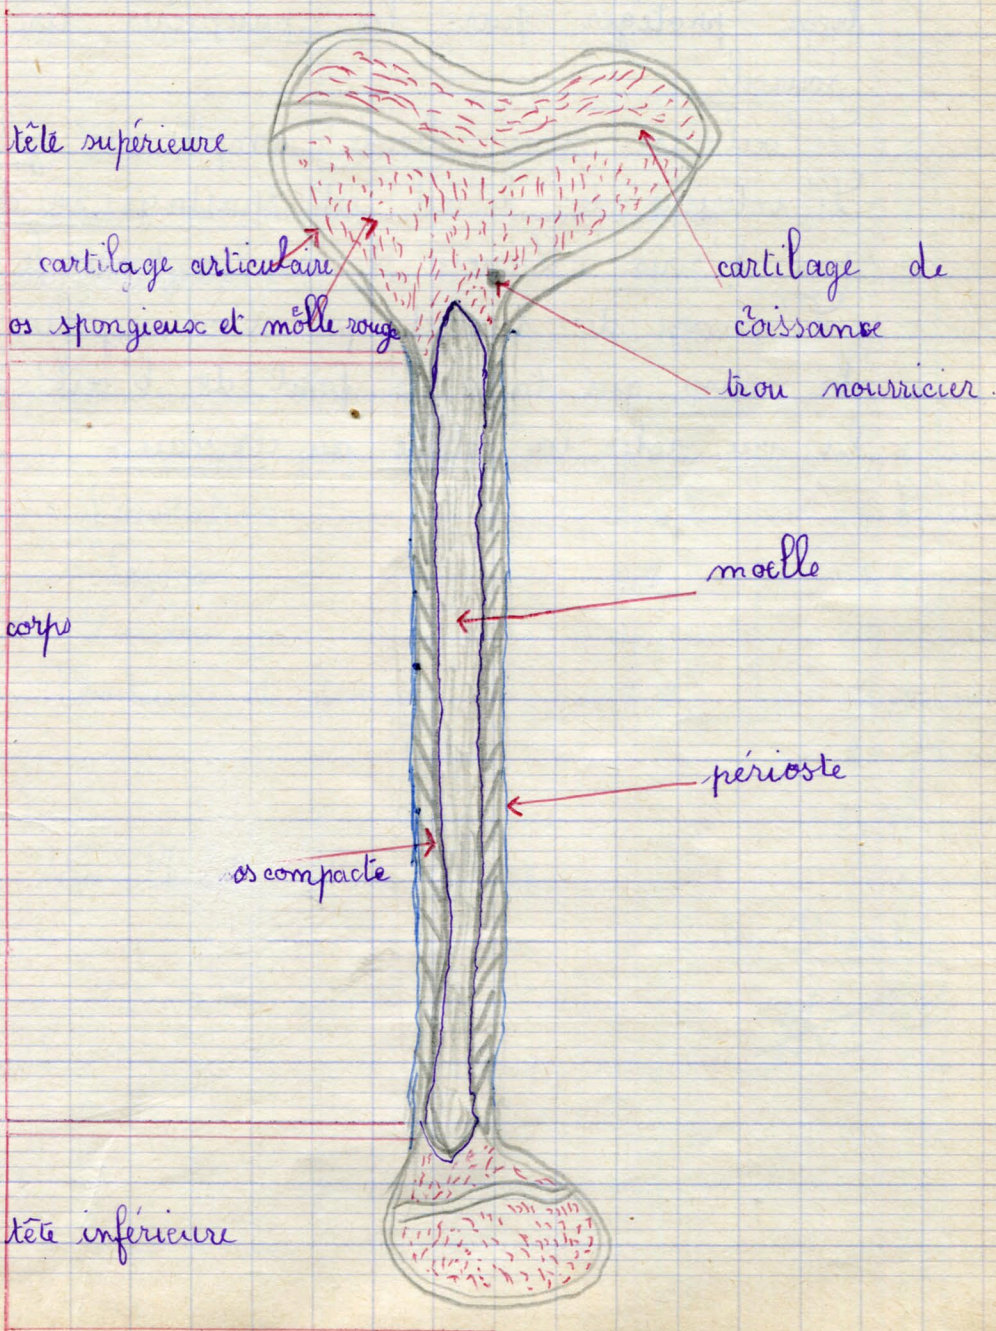 têtê supérieure
cartilage articulaire
os spongieux et môlle rouge
cartilage de
côissance
trou nourricier.
moelle
corps
périoste
os compacte
têtê inférieure